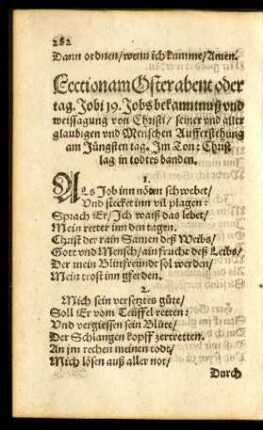 282
Dann ordnen/wenn ich kumme/Amen.
Lection am Osterabent oder
tag. Jobi 19. Jobs bekanntnuß vnd
weissagung von Christi/ seiner vnd aller
glaubigen vnd Menschen Aufferstehung
am Jüngsten tag. Im Ton: Christ
lag in todtes banden.
1.
ALs Job inn nöten schwebet/
Vnd stecket inn vil plagen:
Sprach Er/Ich waiß das lebet/
Mein retter inn den tagen.
Christ der rain Samen deß Weibs/
Gott vnd Mensch/ain fruche deß Leibs/
Der mein Blutfreunde sol werden/
Mein trost inn gferden.
2.
Mich sein versetztes güte/
Soll Er vom Teüffel retten:
Vnd vergiessen sein Blüte/
Der Schlangen kopff zertretten.
An jm rechen meinen todt/
Mich lösen auß aller not/
Durch